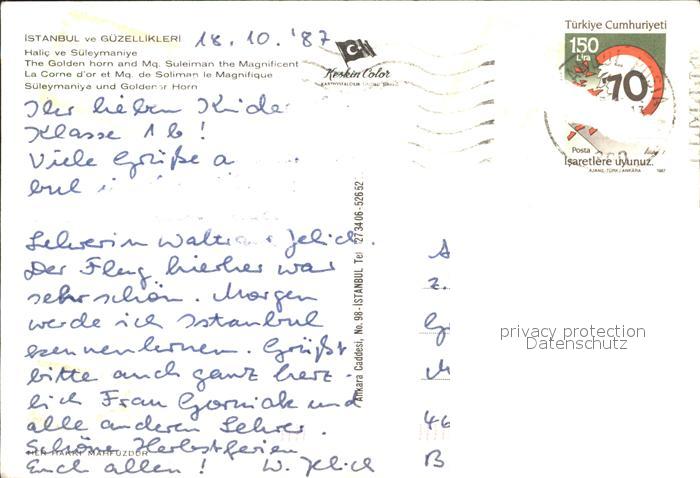 İSTANBUL ve GÜZELLİKLERİ 18.10.'87
Haliç ve Süleymaniye
The Golden horn and Mq. Suleiman the Magnificent
La Corne d'or et Mq. de Soliman le Magnifique
Süleymaniye und Goldener Horn
Keskin Color
Türkiye Cumhuriyeti
150
Lira
70
Posta
İşaretlere uyunuz.
AJANS-TÜRK / ANKARA 1987
Ihr lieben Kinder
Klasse 1b!
Viele Grüße a
bul
Lehrerin Jelich.
Der Flug hierher war
sehr schön. Morgen
werde ich Istanbul
kennenlernen. Grüßt
bitte auch ganz herz-
lich Frau Gorniak und
alle anderen Lehrer.
Schöne Herbstferien
HER HAKKI MAHFUZDUR
Euch allen! W. Jelich
Ankara Caddesi, No. 98-İSTANBUL Tel 273406-52652
A
z.
G
M
46
B
privacy protection
Datenschutz